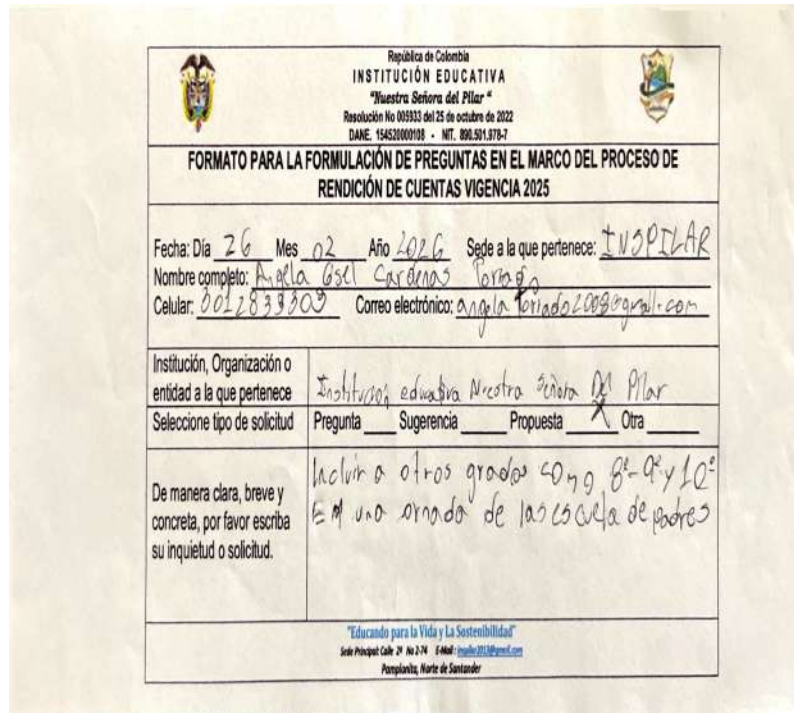 República de Colombia
INSTITUCIÓN EDUCATIVA
"Nuestra Señora del Pilar "
Resolución No 005933 del 25 de octubre de 2022
DANE. 154520000108 - NIT. 890.501.978-7
FORMATO PARA LA FORMULACIÓN DE PREGUNTAS EN EL MARCO DEL PROCESO DE
RENDICIÓN DE CUENTAS VIGENCIA 2025
Fecha: Día 26 Mes 02 Año 2026 Sede a la que pertenece: INSPILAR
Nombre completo: Angela Gsel Cardenas
Celular: Correo electrónico:
Institución, Organización o
entidad a la que pertenece
Institucion educativa Nuestra Señora Del Pilar
Seleccione tipo de solicitud Pregunta ____ Sugerencia ____ Propuesta X Otra ____
De manera clara, breve y
concreta, por favor escriba
su inquietud o solicitud.
Incluir a otros grados como 8º-9º y 10º
En una ornada de las escuela de padres
"Educando para la Vida y La Sostenibilidad"
Sede Principal: Calle 2ª No 2-74 E-Mail: inspilar2013@gmail.com
Pamplonita, Norte de Santander